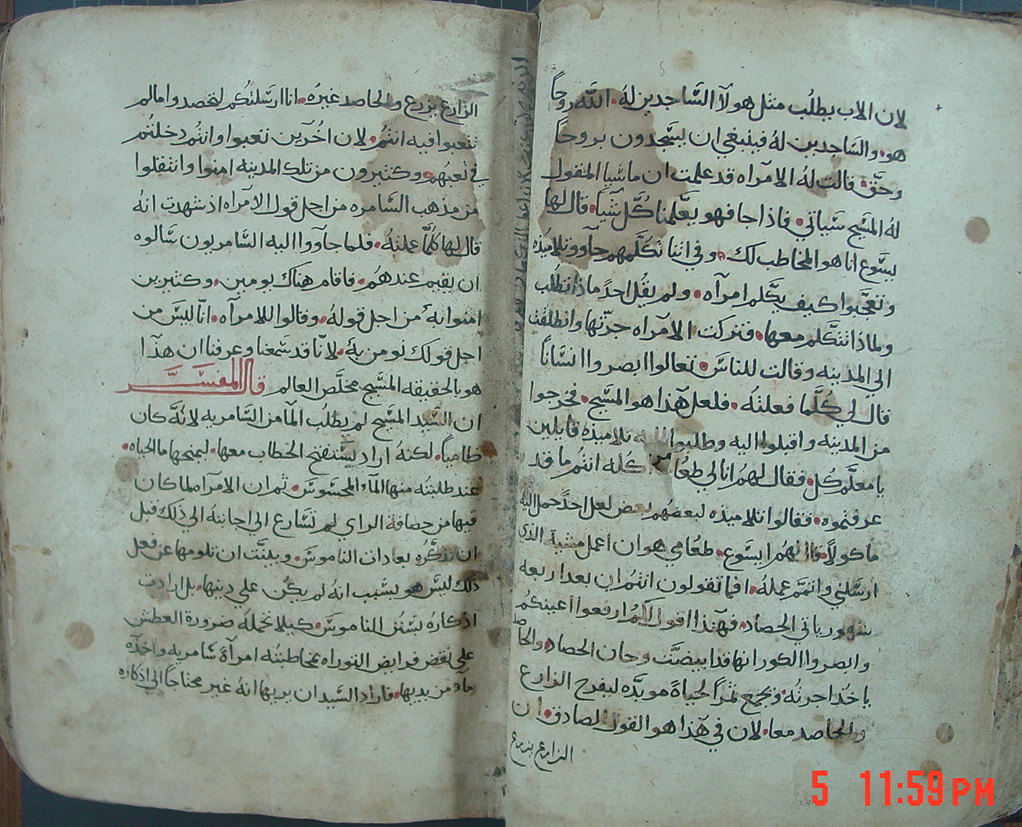 لان الاب يطلب مثل هولآ الساجدين له. الله روحاً
هو. والساجدين له فينبغي ان يسجدون بروحاً
وحق. قالت له الامرآه قد علمت ان ماسيا المقول
له المسيح سياتي. فاذا جا فهو يعلمنا كل شياً. قال لها
يسوع انا هو المخاطب لك. وفي اثنا تكلمهم جآو تلاميذه
وتعجبوا كيف يكلم امرآه. ولم يقل احدً ماذا تطلب
ولماذا تتكلم معها. فتركت الامرآه جرتها وانطلقت
الي المدينه وقالت للناس. تعالوا ابصروا انساناً
قال لي كلما فعلته. فلعل هذا هو المسيح. فخرجوا
من المدينه واقبلوا اليه وطلبوا تلاميذه قايلين
يا معلم كل. فقال لهم ان لي طعاماً كله انتم ما قد
عرفتموه. فقالوا تلاميذه لبعضهم بعض لعل احدً حمل اليه
ماكولاً. قال لهم ايسوع. طعامي هو ان اعمل مشية الذي
ارسلني واتمم عمله. افما تقولون انتم ان بعد اربعه
شهور ياتي الحصاد. فهنذا اقول لكم ارفعوا اعينكم
وابصروا الكور انها قد ابيضت وحان الحصاد. والحاصد
ياخذ اجرته. ويجمع ثمراً لحياة مويده ليفرح الزارع
والحاصد معا. لان في هذا هو القول الصادق ان
الزارع يزرع
الزارع يزرع والحاصد غيره. انا ارسلتكم لتحصدوا مالم
تتعبوا فيه انتم. لان اخرين تعبوا وانتم دخلتم
في تعبهم. وكثيرون من تلك المدينه امنوا وانتقلوا
من مذهب السامره من اجل قول الامرآه اذ شهدت انه
قال لها كلما عملته. فلما جآووا اليه السامريون سالوه
ان يقيم عندهم. فاقام هناك يومين. وكثيرين
امنوا به من اجل قوله. وقالوا للامرآه. انا ليس من
اجل قولك نومن به. لانا قد سمعنا وعرفنا ان هذا
هو بالحقيقه المسيح مخلص العالم قال المفسر
ان السيد المسيح لم يطلب المآ من السامريه لانه كان
ظامياً. لكنه اراد يستفتح الخطاب معها. ليمنحها ما الحياه.
عند طلبته منها المآء المحسوس. ثم ان الامرآه لما كان
فيها من حصافة الراي لم تسارع الي اجابته الي ذلك قبل
ان تذكره بعادات الناموس. وبينت ان تلومها عن فعل
ذلك ليس هو بسبب انه لم يكن علي دينها. بل ارادت
اذكاره بسنن الناموس. كيلا تحمله ضرورة العطش
علي نقض فرايض التوراه بمخاطبته امرآة سامريه واخذه
مآء من يديها. فاراد السيد ان يريها انه غير محتاجاً الي اذكاره